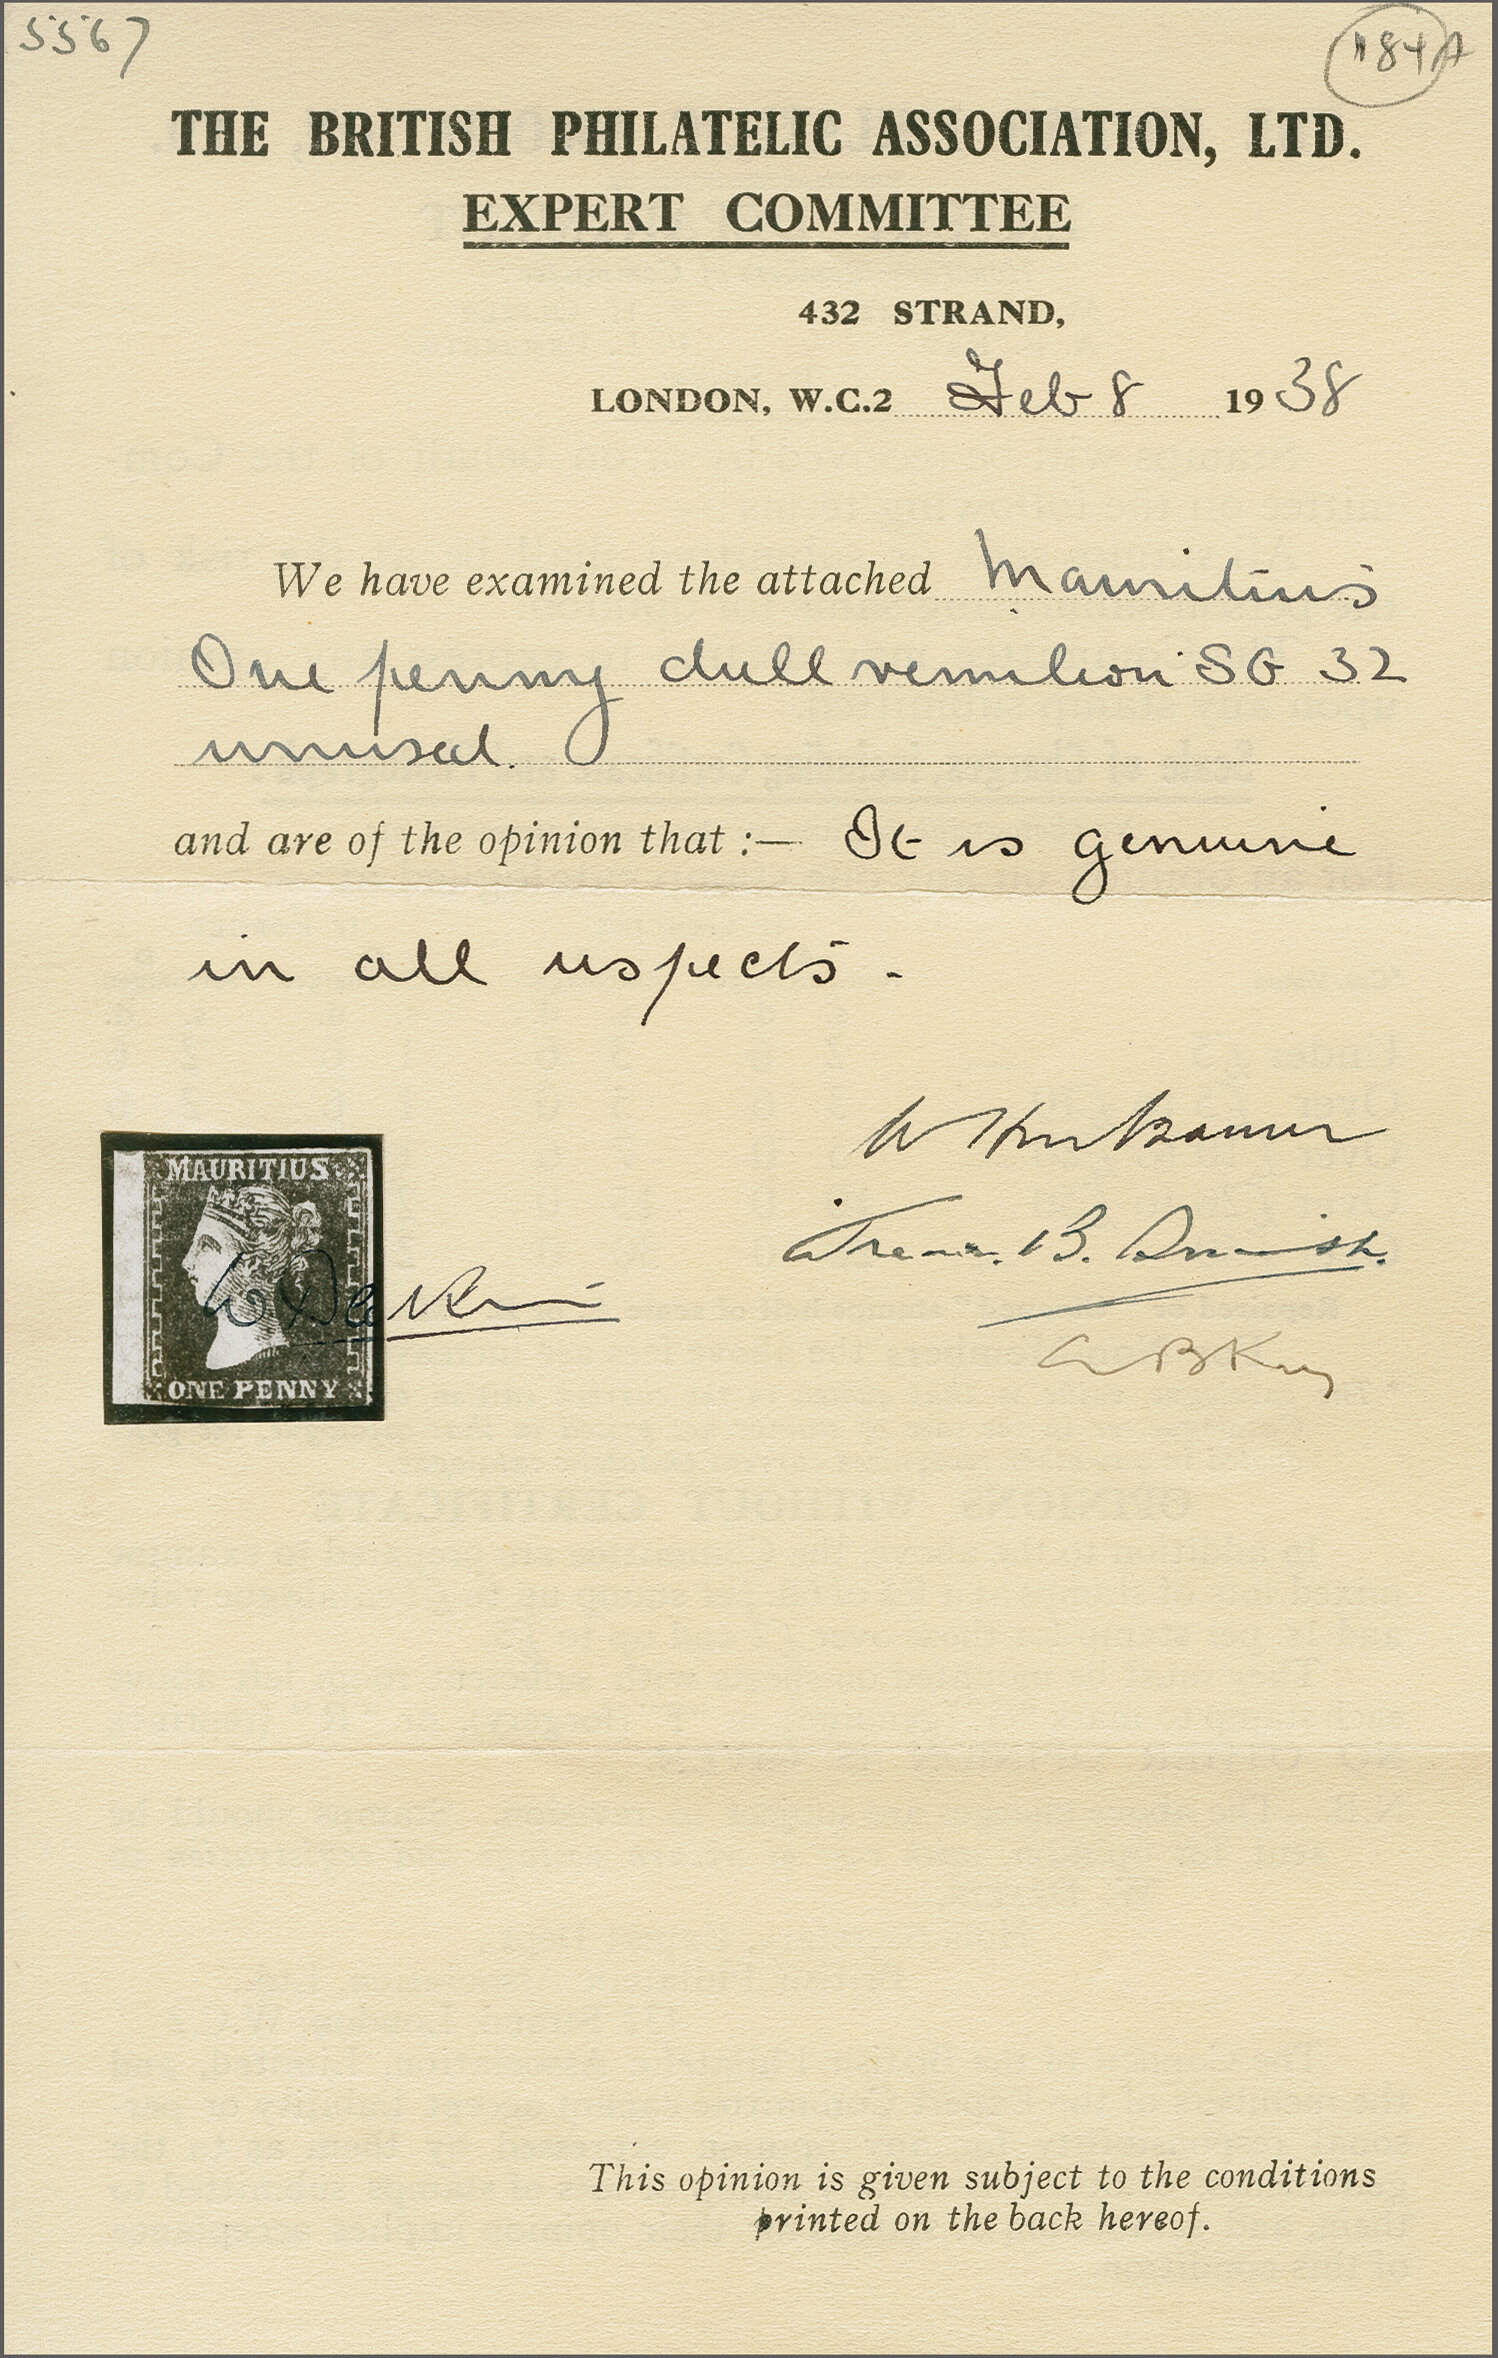 5567
THE BRITISH PHILATELIC ASSOCIATION, LTD.
EXPERT COMMITTEE
432 STRAND,
LONDON, W.C.2 Feb 8 1938
We have examined the attached Mauritius
One penny dull vermilion SG 32
unused.
and are of the opinion that :— It is genuine
in all respects -
MAURITIUS
ONE PENNY
This opinion is given subject to the conditions
printed on the back hereof.